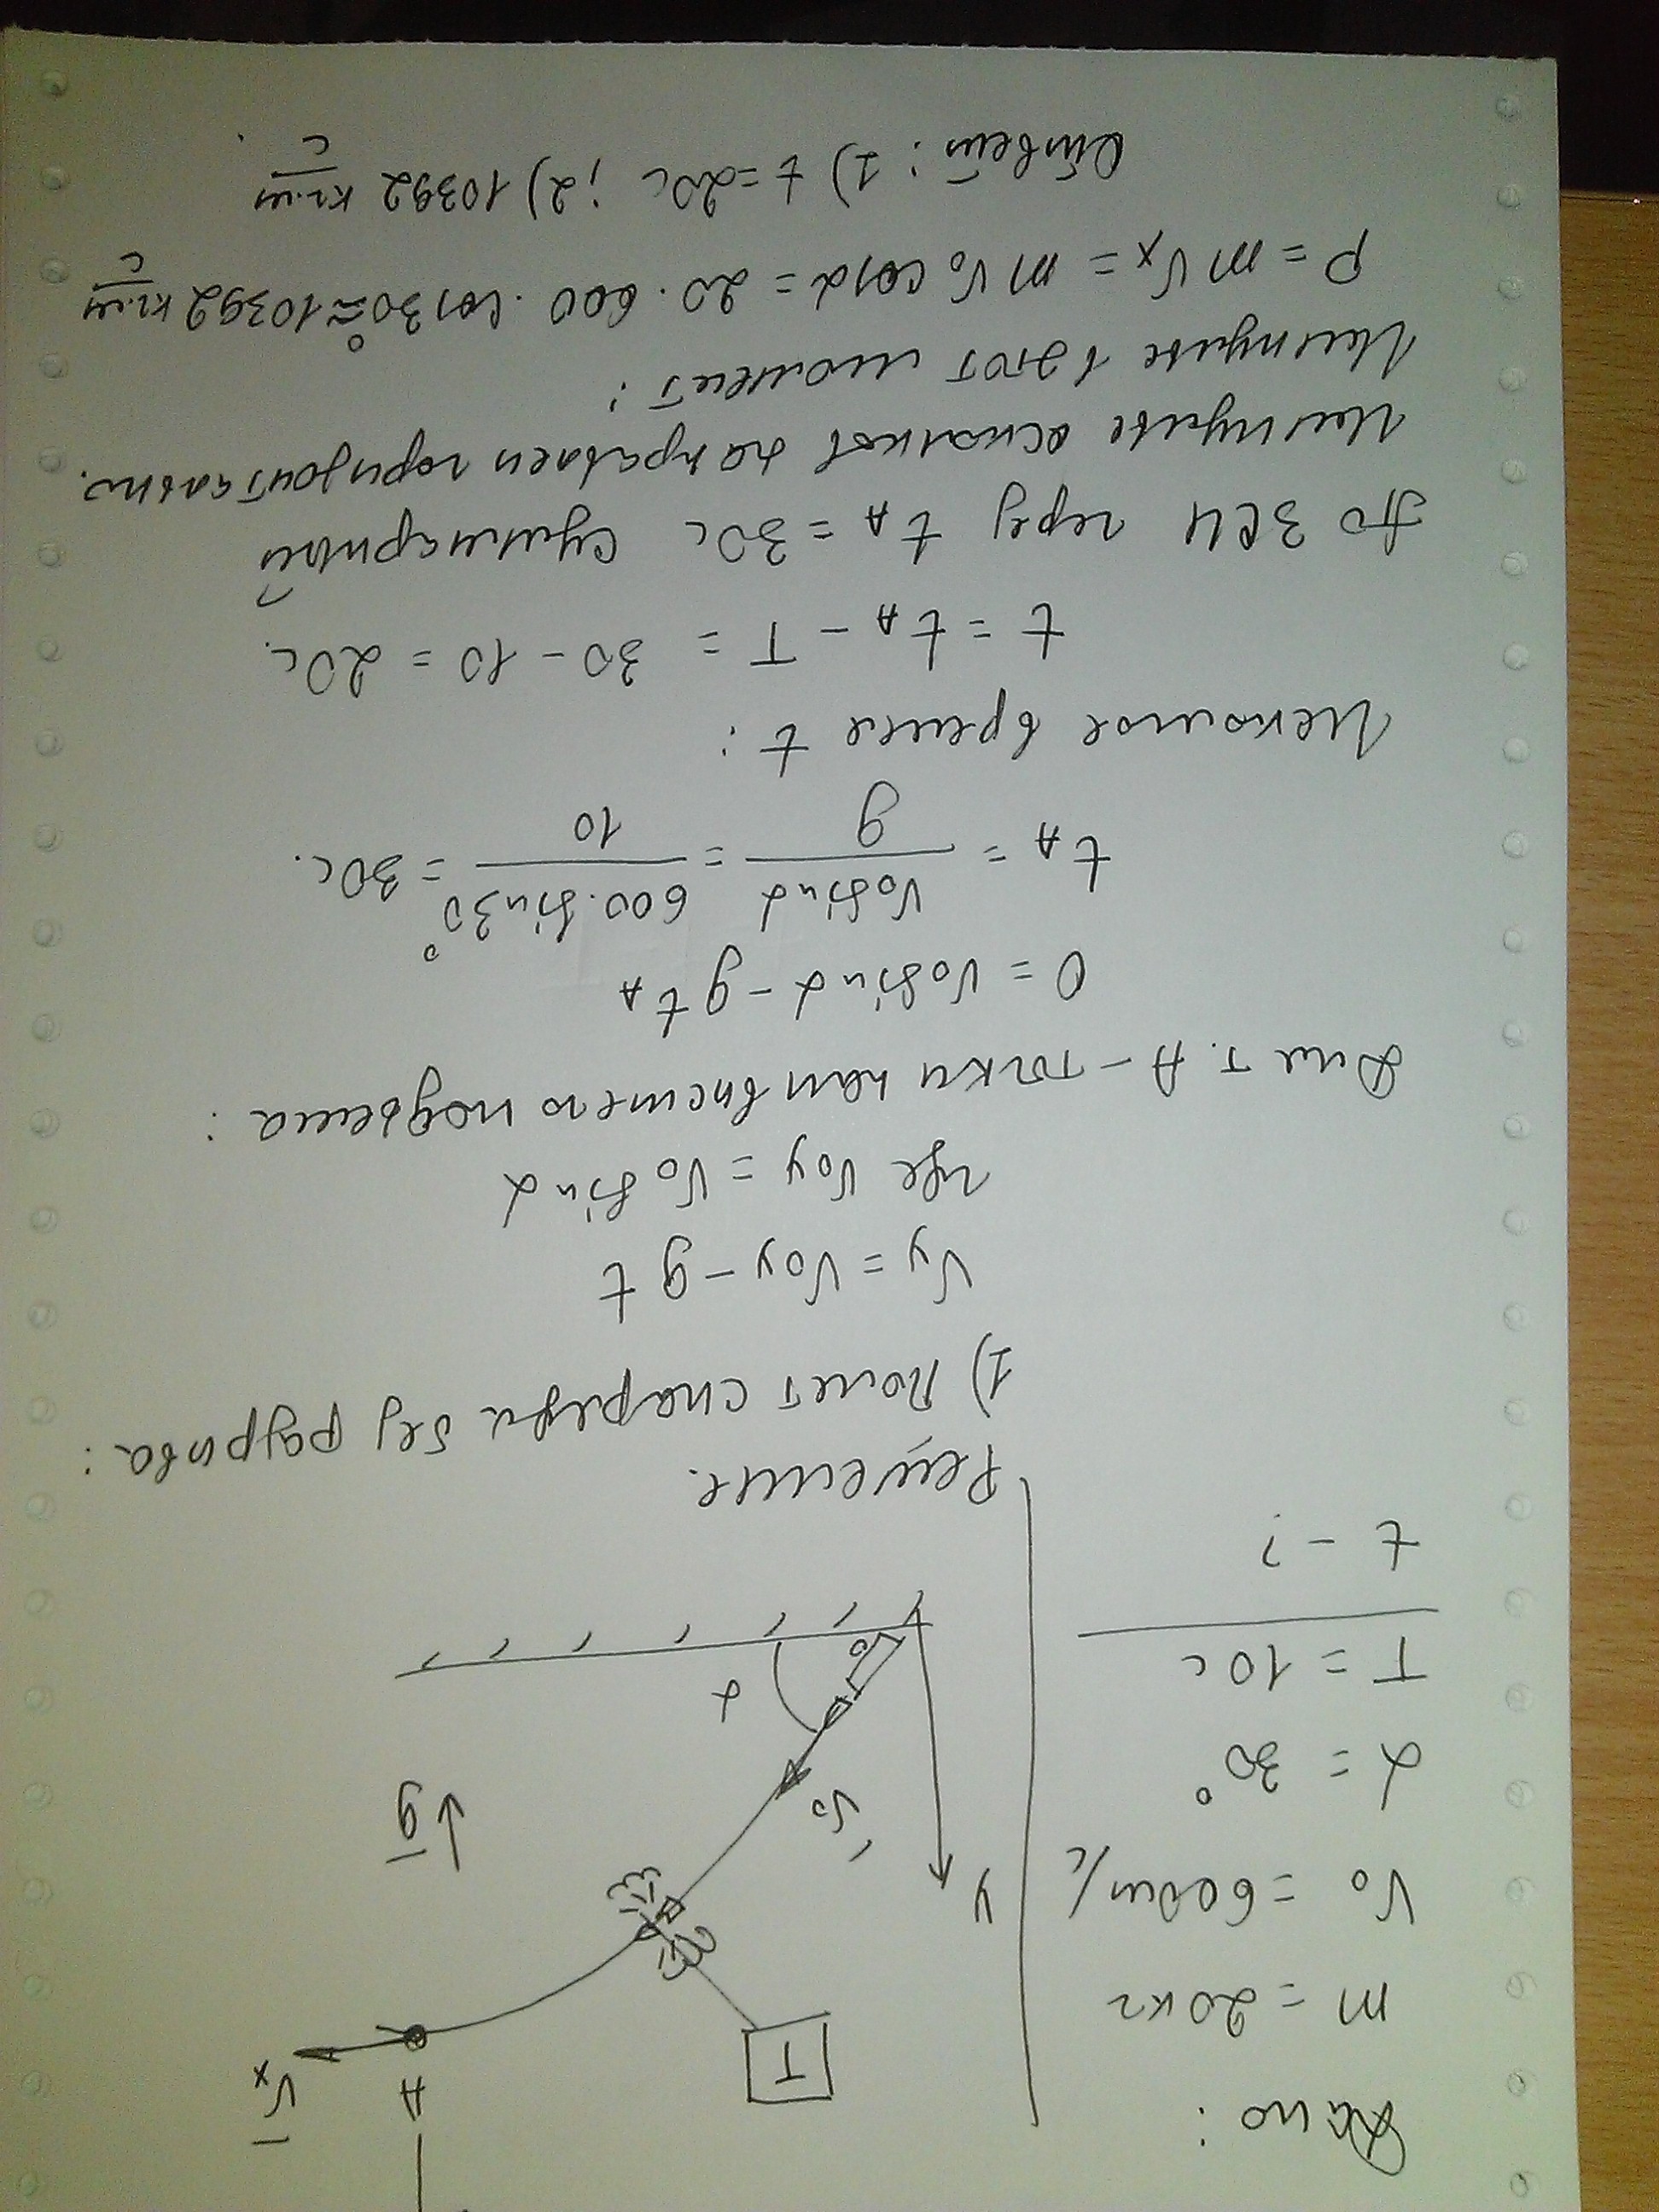 Дано:
m = 20 кг
V₀ = 600 м/с
α = 30°
T = 10 с
t - ?
y
T
A
V̅ₓ
V̅₀
g̅
α
Решение.
1) Полет снаряда без разрыва:
Vy = V₀y - g t
где V₀y = V₀ sin α
Для т. A - точки наивысшего подъема:
0 = V₀ sin α - g t_A
t_A = V₀ sin α / g = 600 · sin 30° / 10 = 30 с.
Искомое время t:
t = t_A - T = 30 - 10 = 20 с.
По ЗСИ через t_A = 30 с суммарный
импульс осколков направлен горизонтально.
Импульс в этот момент:
p = m Vₓ = m V₀ cos α = 20 · 600 · cos 30° ≈ 10392 кг·м/с
Ответ: 1) t = 20 с ; 2) 10392 кг·м/с.